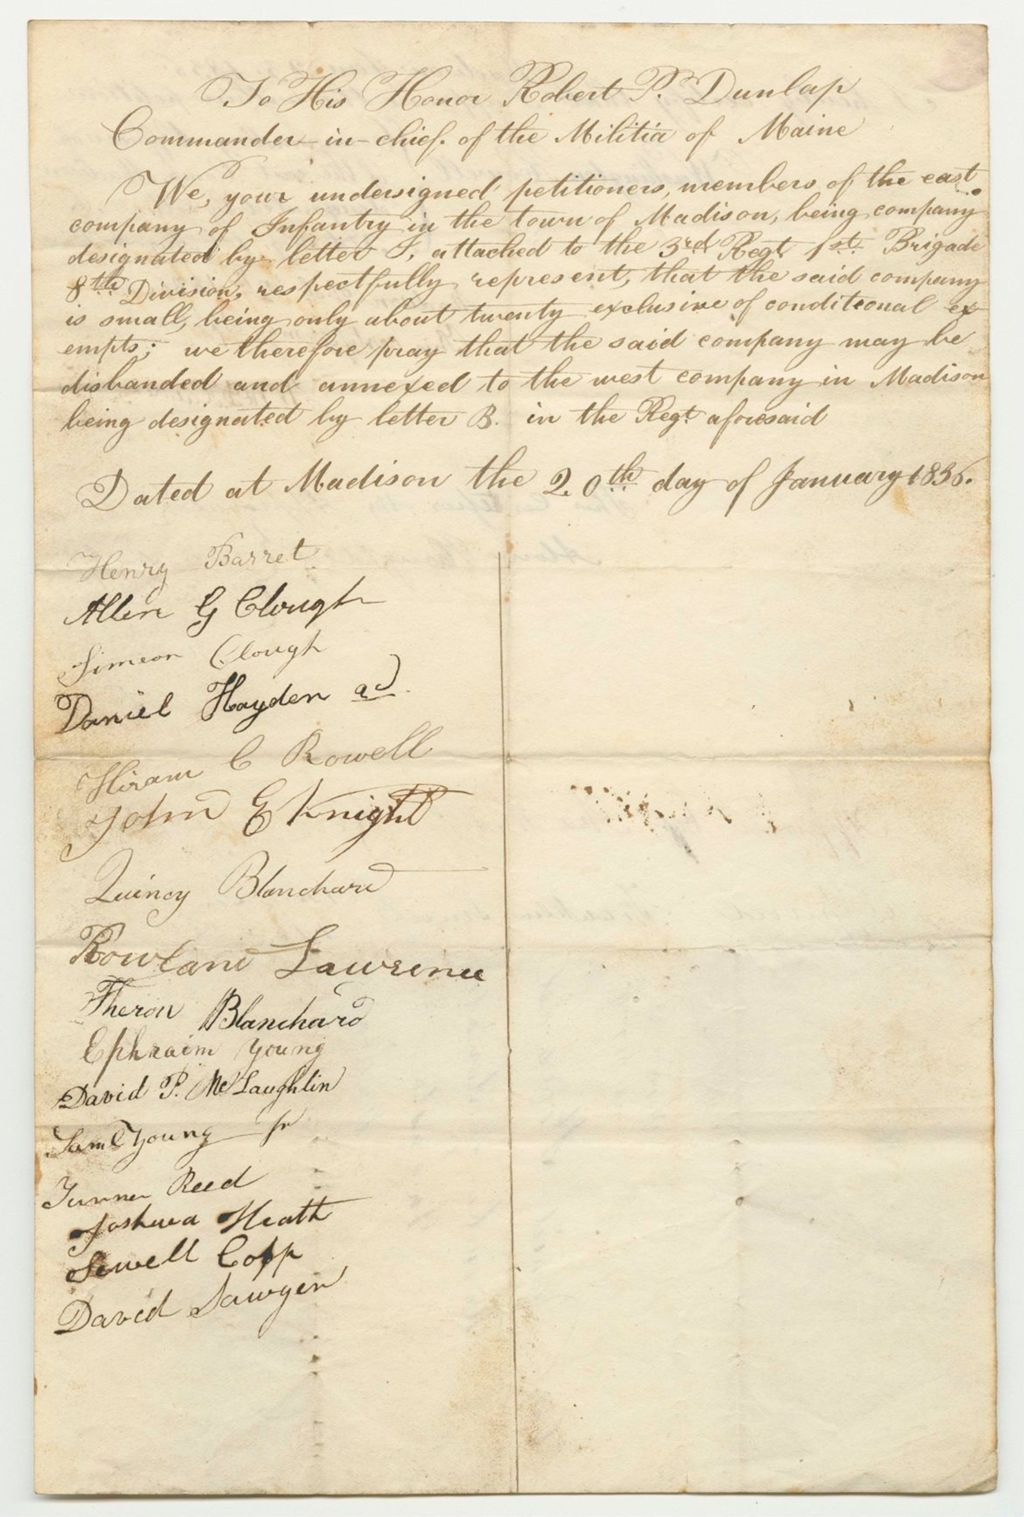 To His Honor Robert P. Dunlap
Commander-in-chief. of the Militia of Maine
We, your undersigned petitioners, members of the east
company of Infantry in the town of Madison, being company
designated by letter I, attached to the 3rd Regt 1st Brigade
8th Division, respectfully represent, that the said company
is small, being only about twenty exclusive of conditional ex
empts; we therefore pray that the said company may be
disbanded and annexed to the west company in Madison
being designated by letter B. in the Regt aforesaid
Dated at Madison the 20th day of January 1836.
Henry Barret
Allen G Clough
Simeon Clough
Daniel Hayden
Hiram C Rowell
John E Knight
Quincy Blanchard
Rowland Lawrence
Theron Blanchard
Ephraim Young
David P. McLaughlin
Saml Young Jr
Turner Reed
Joshua Heath
Sewell Copp
David Sawyer